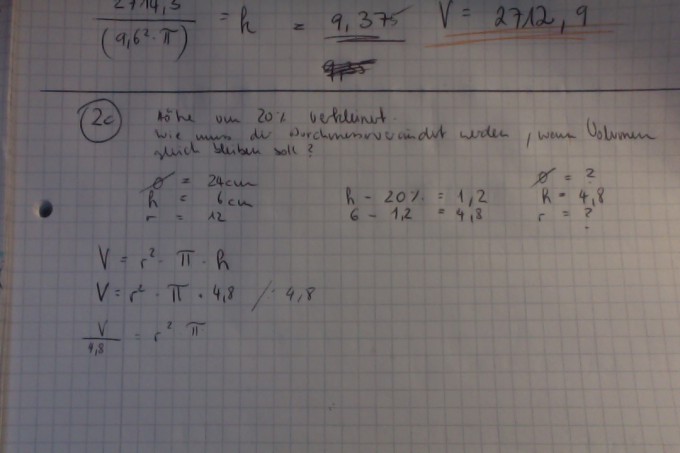 2714,3 / (9,6² · π) = h = 9,375 V = 2712,9
2c Höhe um 20% verkleinert.
Wie muss der Durchmesser verändert werden, wenn Volumen
gleich bleiben soll?
Ø = 24cm
h = 6cm
r = 12
h - 20% = 1,2
6 - 1,2 = 4,8
Ø = ?
h = 4,8
r = ?
V = r² · π · h
V = r² · π · 4,8 /: 4,8
V / 4,8 = r² π